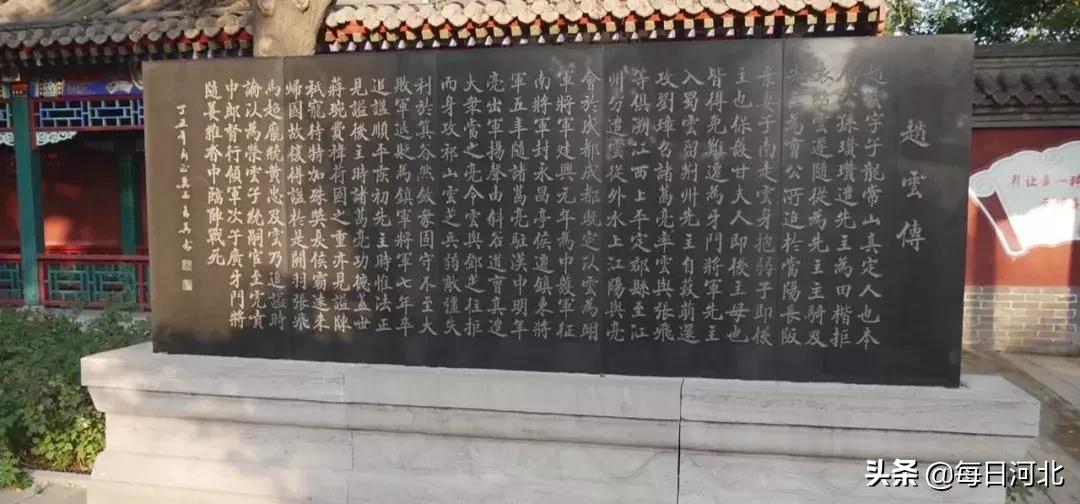 趙雲傳
趙雲字子龍常山真定人也本
屬公孫瓚瓚遣先主為田楷拒
袁紹雲遂隨從為先主主騎及
先主為曹公所追於當陽長阪
棄妻子南走雲身抱弱子即後
主也保護甘夫人即後主母也
皆得免難遷為牙門將軍先主
入蜀雲留荊州先主自葭萌還
攻劉璋召諸葛亮率雲與張飛
等俱溯江西上平定郡縣至江
州分遣雲從外水上江陽與亮
會於成都成都既定以雲為翊
軍將軍建興元年為中護軍征
南將軍封永昌亭侯遷鎮東將
軍五年隨諸葛亮駐漢中明年
亮出軍揚聲由斜谷道曹真遣
大衆當之亮令雲與鄧芝往拒
而身攻祁山雲芝兵弱敵彊失
利於箕谷然斂衆固守不至大
敗軍退貶為鎮軍將軍七年卒
追謚順平侯初先主時惟法正
見謚後主時諸葛亮功德蓋世
蔣琬費禕荷國之重亦見謚陳
祗寵待特加殊獎夏侯霸遠來
歸國故復得謚於是關羽張飛
馬超龐統黃忠及雲乃追謚時
論以為榮雲子統嗣官至虎賁
中郎督行領軍次子廣牙門將
隨姜維沓中臨陣戰死
丁丑年
引让第一
头条 @每日河北